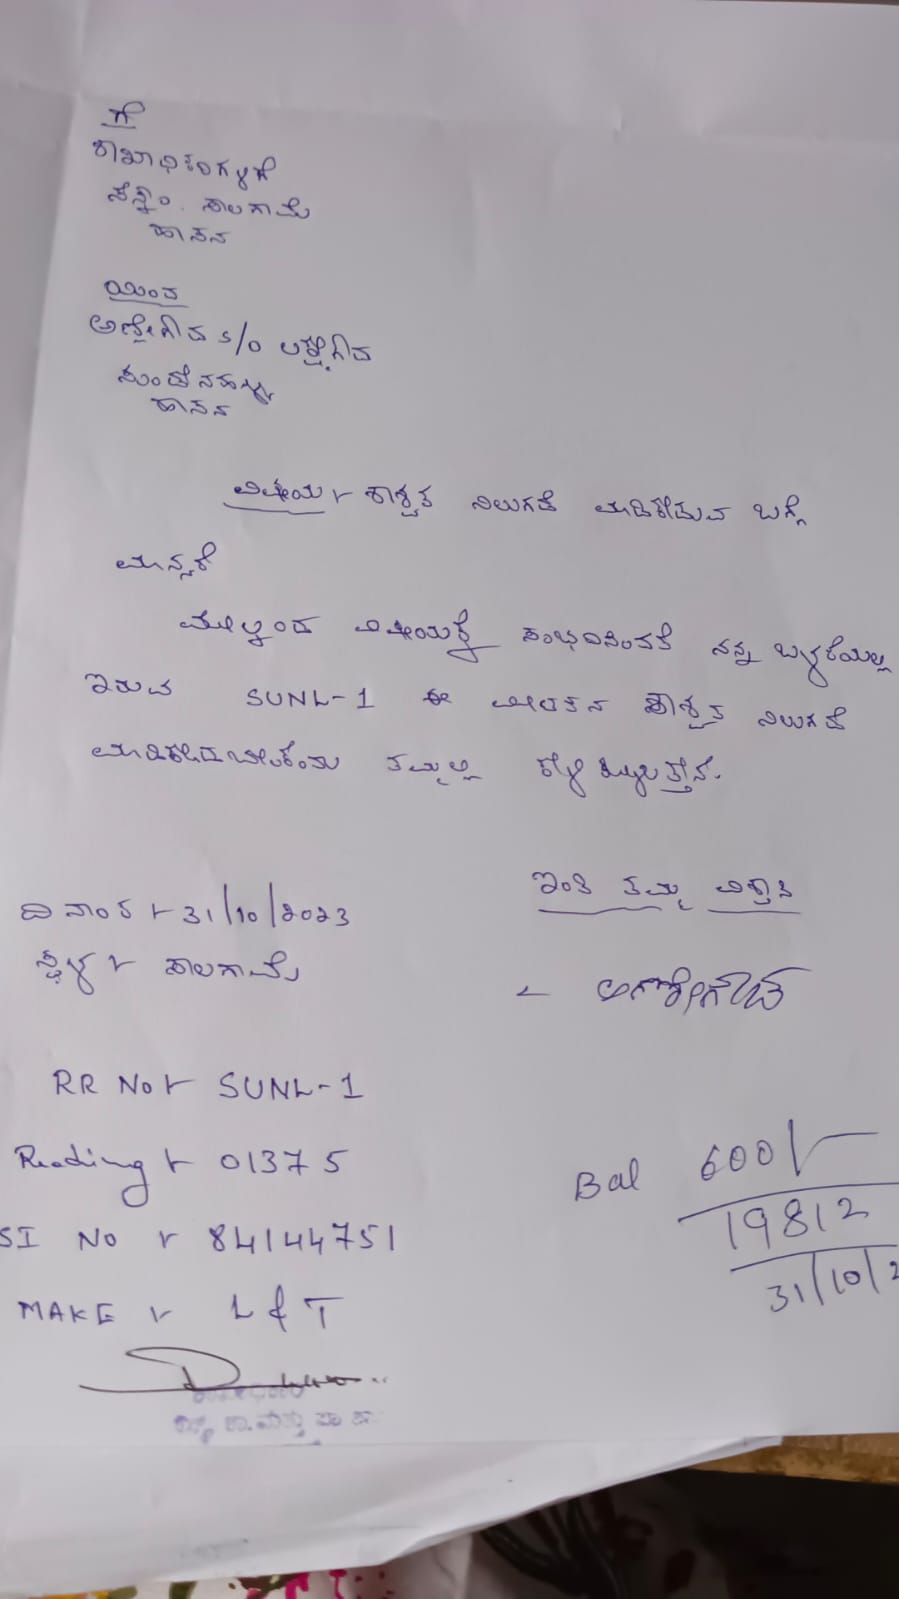 ಗೆ
ಶಾಖಾಧಿಕಾರಿಗಳಿಗೆ
ಸೆಸ್ಕಾಂ. ಸಾಲಗಾಮೆ
ಹಾಸನ
ಯಿಂದ
ಅಣ್ಣೇಗೌಡ s/o ಲಕ್ಕೇಗೌಡ
ಹಾಸನ
ವಿಷಯ:- ಶಾಶ್ವತ ನಿಲುಗಡೆ ಮಾಡಿಕೊಡುವ ಬಗ್ಗೆ
ಮಾನ್ಯರೆ
ಮೇಲ್ಕಂಡ ವಿಷಯಕ್ಕೆ ಸಂಭದಿಸಿಂದತೆ ನನ್ನ ಬಳಕೆಯಲ್ಲಿ
ಇರುವ SUNL-1 ಈ ಮೀಟರಿನ ಶಾಶ್ವತ ನಿಲುಗಡೆ
ಮಾಡಿಕೊಡಬೇಕೆಂದು ತಮ್ಮಲ್ಲಿ ಕೇಳಿಕೊಳ್ಳುತ್ತೇನೆ.
ಇಂತಿ ತಮ್ಮ ವಿಶ್ವಾಸಿ
ದಿನಾಂಕ:- 31/10/2023
ಸ್ಥಳ:- ಸಾಲಗಾಮೆ
- ಅಣ್ಣೇಗೌಡ
RR No:- SUNL-1
Reading:- 01375
SI No :- 84144751
MAKE :- L & T
Bal 600/-
19812
31/10/2